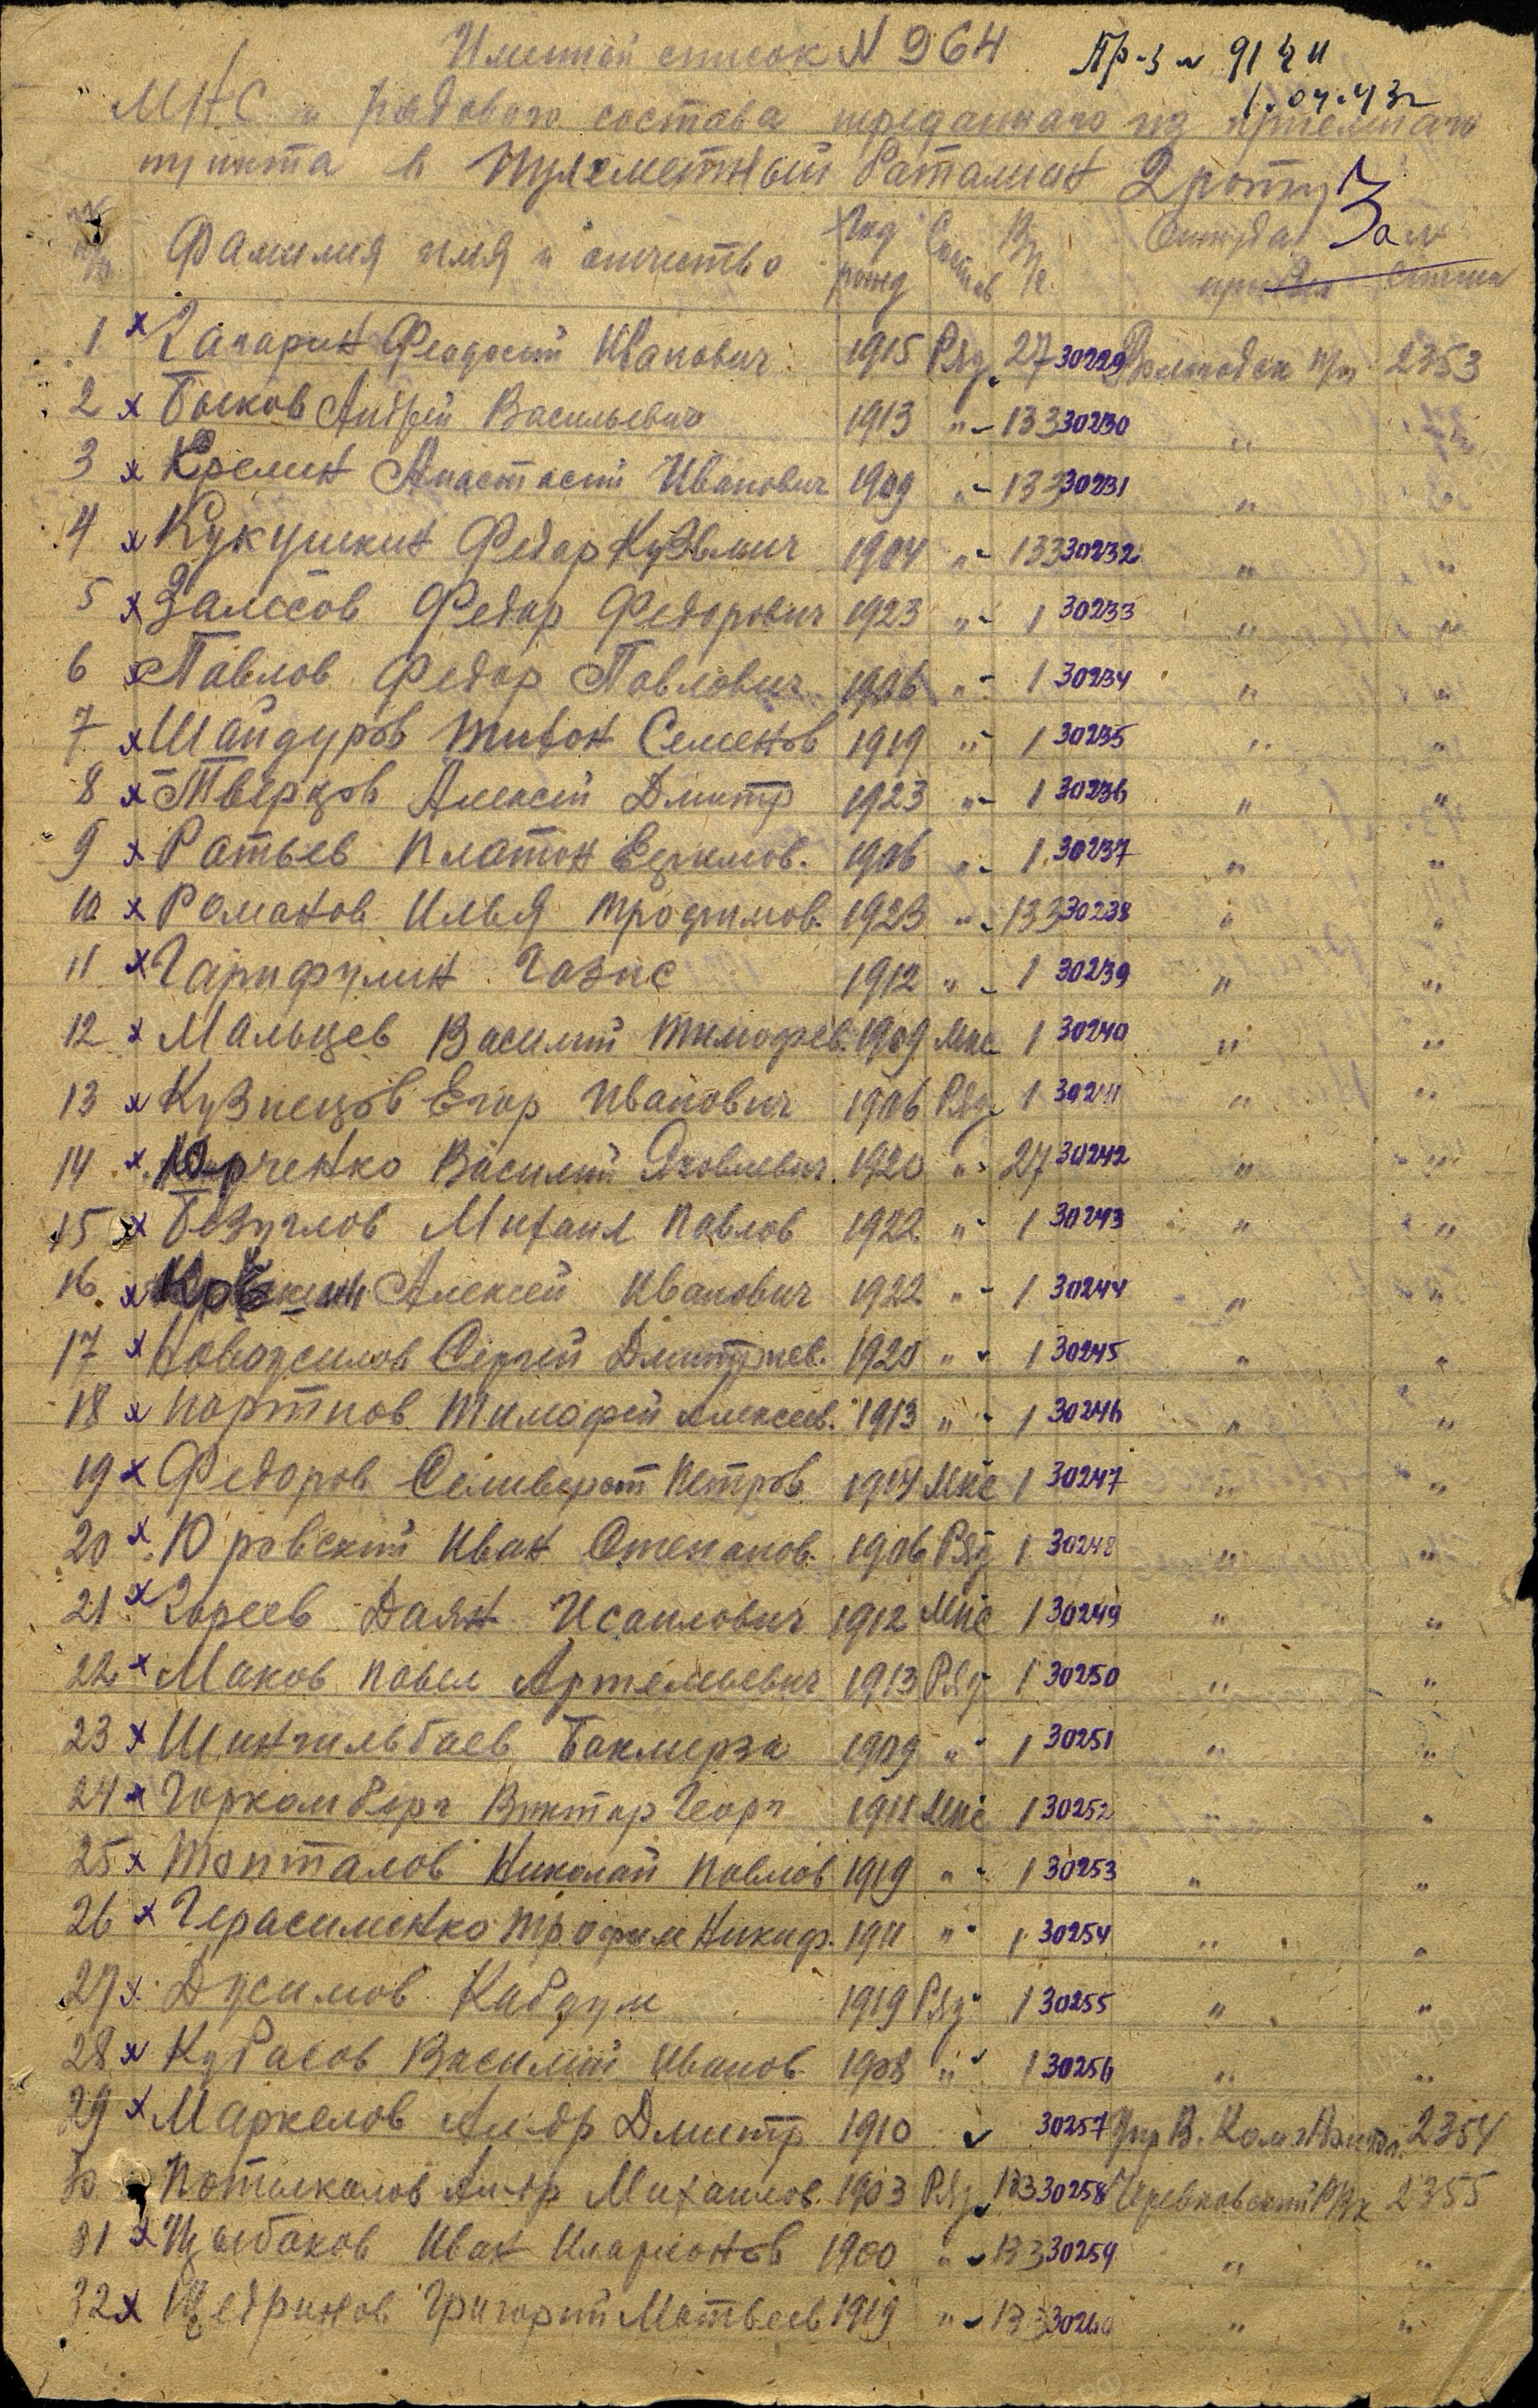 Именной список N 964
Пр-з N 91
1.04.43г
МНС и рядового состава переданного из приемного
пункта в Пулеметный Баталион 2 роту
3
№ п/п Фамилия имя и отчество Год рожд Состав Откуда прибыл № списка
1 х Гагарин Феодосий Иванович 1915 Ряд. 27 30229 2353
2 х Быков Андрей Васильевич 1913 " - 133 30230 "
3 х Кремин Анастасий Иванович 1909 " - 133 30231 "
4 х Кукушкин Федор Кузьмич 1904 " - 133 30232 " "
5 х Залесов Федор Федорович 1923 " - 1 30233 " "
6 х Павлов Федор Павлович 1906 " - 1 30234 " "
7 х Шайдуров Тихон Семенов 1919 " - 1 30235 " "
8 х Тверцов Алексей Дмитр 1923 " - 1 30236 " "
9 х Ратьев Платон 1906 " - 1 30237 " "
10 х Романов Илья Трофимов. 1923 " - 133 30238 " "
11 х Гарифулин Газис 1912 " - 1 30239 " "
12 х Мальцев Василий Тимофев. 1909 Мнс 1 30240 " "
13 х Кузнецов Егор Иванович 1906 Ряд 1 30241 " "
14 х Юрченко Василий Яковлевич. 1920 " - 27 30242 " "
15 х Безуглов Михаил Павлов 1922 " - 1 30243 " "
16. х Алексей Иванович 1922 " - 1 30244 " "
17 х Новоусилов Сергей Дмитриев. 1920 " 1 30245 " "
18 х Портнов Тимофей Алексеев. 1913 " - 1 30246 " "
19 х Федоров Селиверст Петров 1914 Мнс 1 30247 " "
20 х Юровский Иван Степанов. 1906 Ряд 1 30248 " "
21 х Гореев Даян Исаилович 1912 Мнс 1 30249 " "
22 х Маков Павел Артемьевич 1913 Ряд 1 30250 " "
23 х Шингильбаев Бакмирза 1909 " - 1 30251 " "
24 х Горкомберг Виктор Георг 1911 Мнс 1 30252 " "
25 х Топталов Николай Павлов 1919 " - 1 30253 " "
26 х Герасименко Трофим Никиф. 1911 " - 1 30254 " "
27 х Дусимов Кабдум 1919 Ряд 1 30255 " "
28 х Кубасов Василий Иванов 1908 " 1 30256 " "
29 х Маркелов Ан-др Дмитр 1910 30257 2354
30 Потылкалов Ан-др Михаилов. 1903 Ряд 133 30258 Черевковский РВк 2355
31 х Цыбаков Иван Иларионов 1900 " 133 30259 " "
32 х Щедринов Григорий Матвеев 1919 " 133 30260 " "